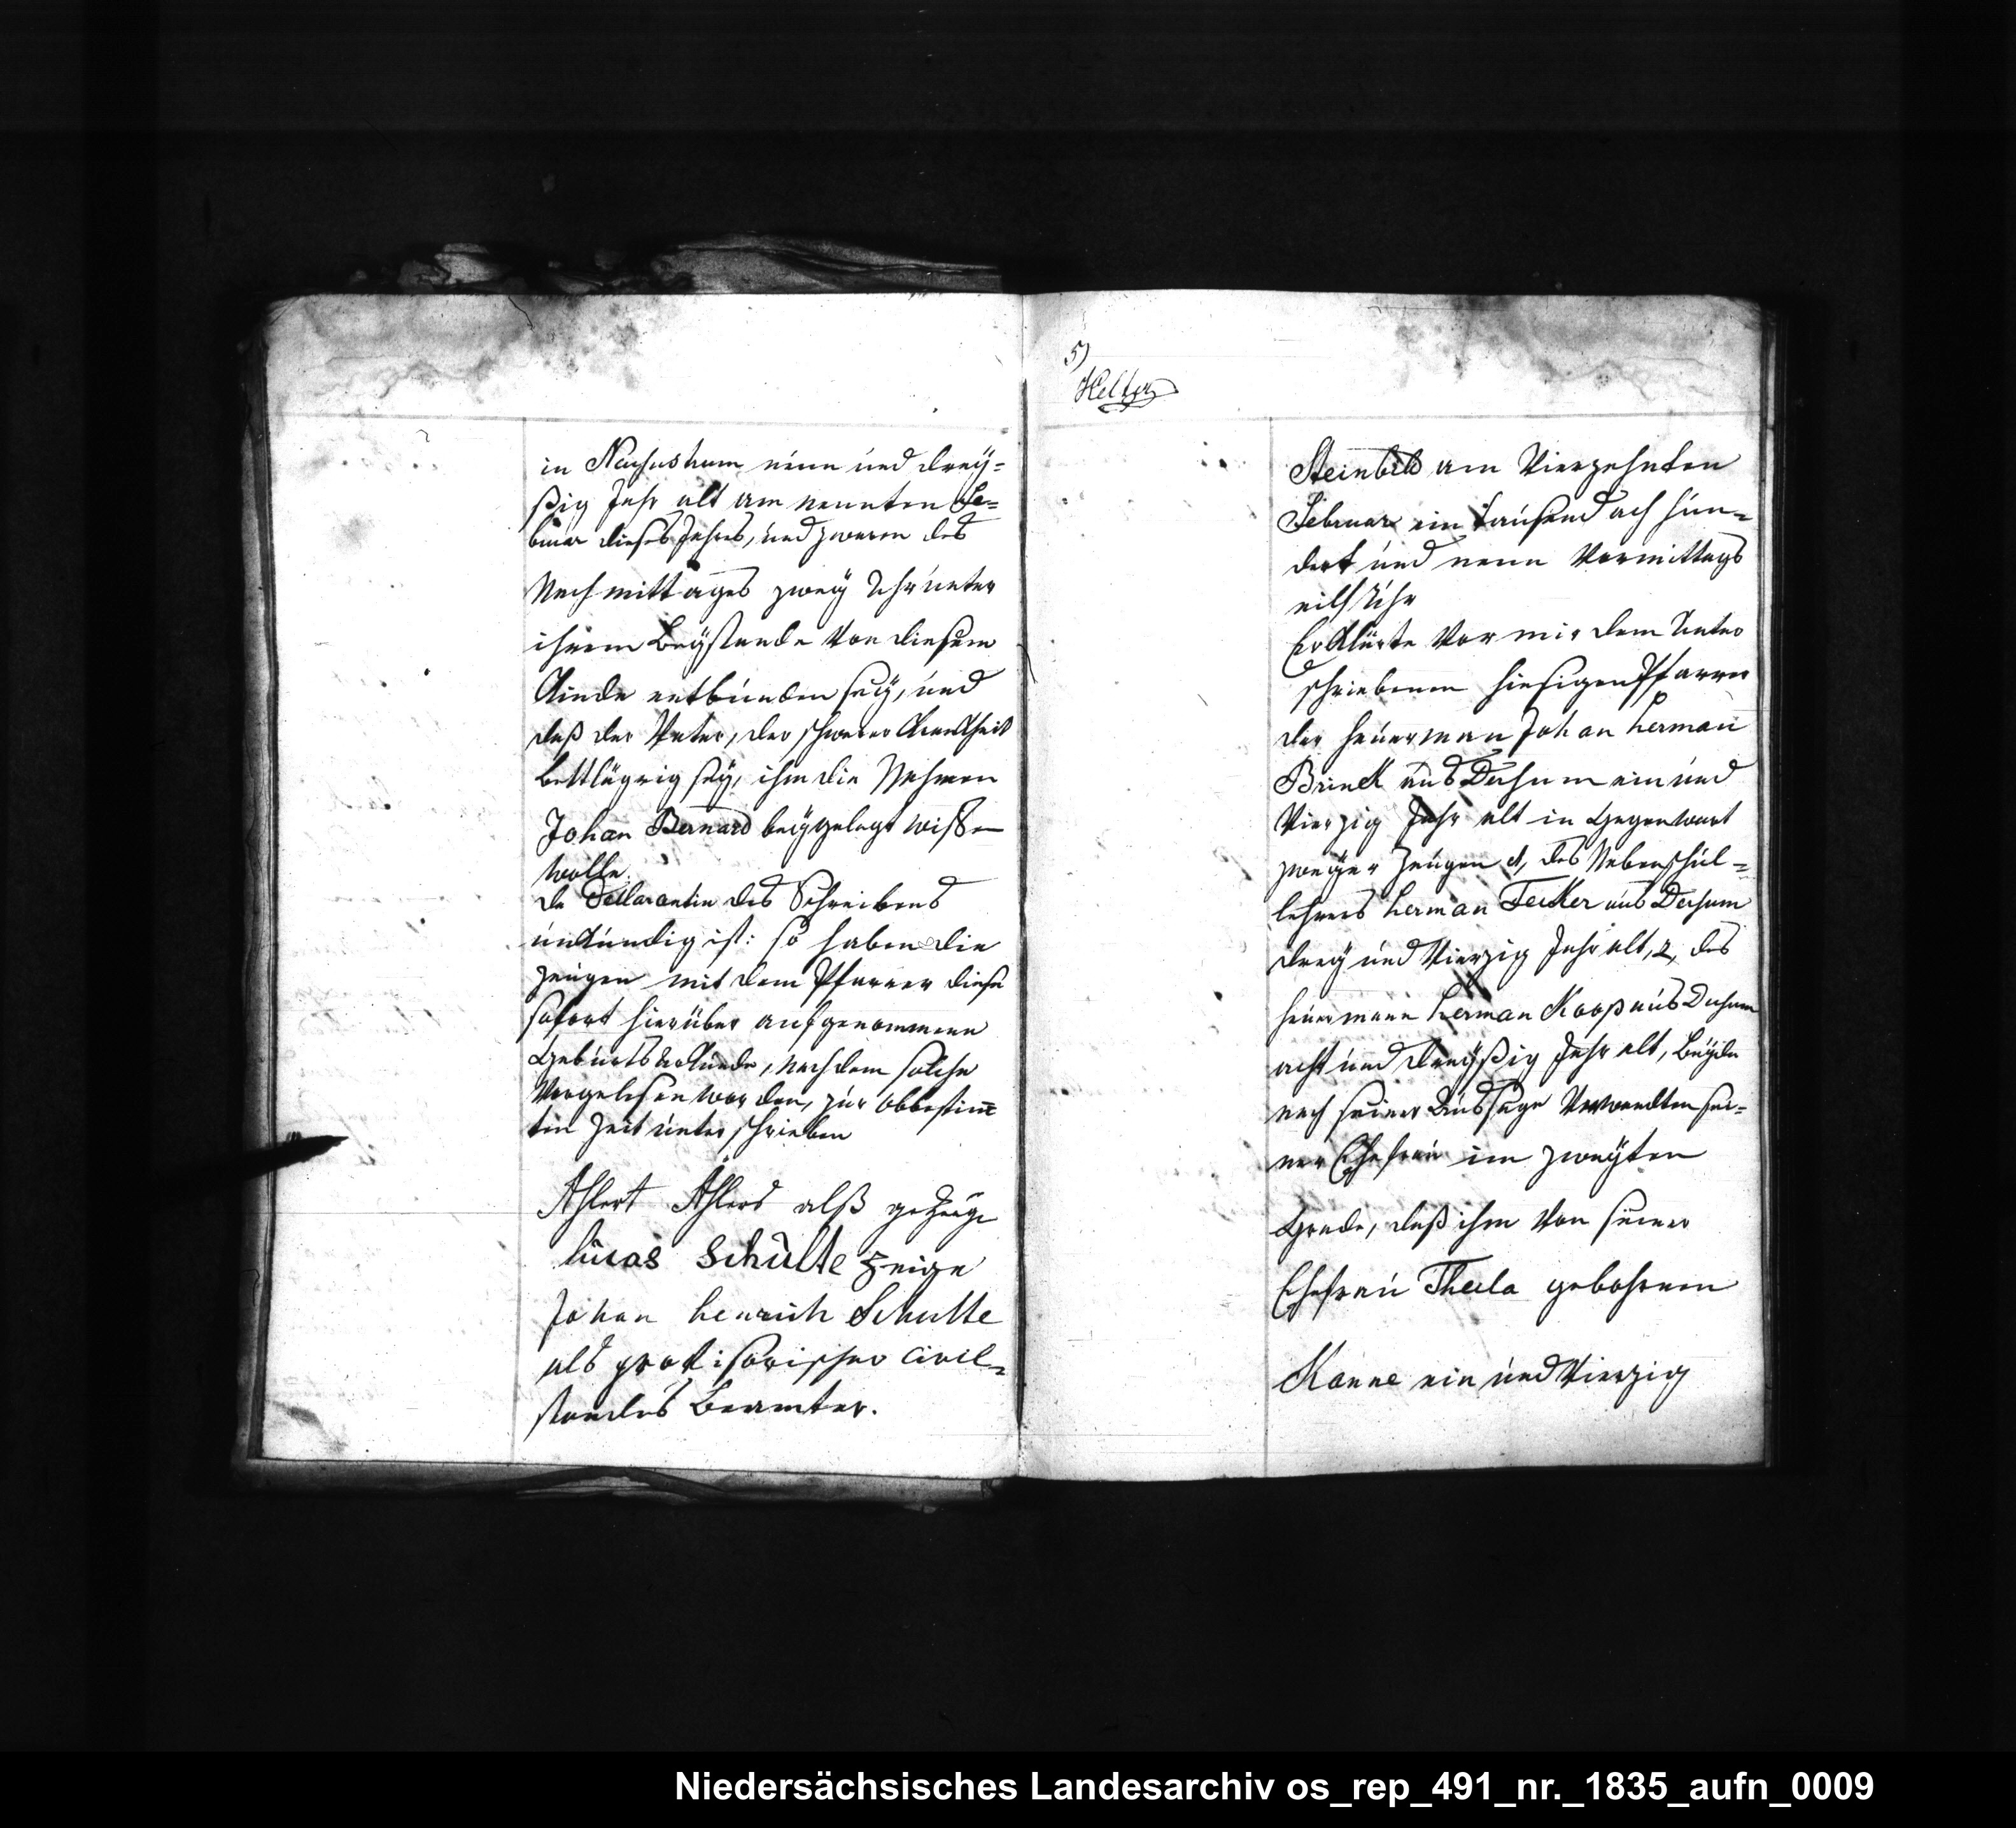 in Neuhushum neun und drey=
ßig Jahr alt am neunten Fe=
bruar dieses Jahres, und zwaren des
Nachmittages zwey Uhr unter
ihrem Beystande von diesem
Kinde entbunden sey, und
daß der Vater, der schwerer Krankheit
bettlägrig sey, ihm die Nahmen
Johan Bernard beygelegt wissen
wolle.
Da Declarantin des Schreibens
unkundig ist: so haben die
Zeugen mit dem Pfarrer diese
sofort hierüber aufgenommene
Geburts Urkunde, nachdem solche
vorgelesen worden, zur obbestim̅
ten Zeit unterschrieben
Ahlert Ahlers alß gezeuge
lucas Schulte Zeige
Johan henrich Schulte
als provisorischer Civil=
standes Beamter.
5)
Steinbild am Vierzehnten
Februar ein tausend ach hun=
dert und neun Vormittags
eilf Uhr
Erklärte vor mir dem Unter
schriebenen hiesigen Pfarrer
der heuerman Johan herman
Brinck aus Dersum ein und
Vierzig Jahr alt in Gegenwart
zweyer Zeugen 1, des Nebenschul=
lehrers herman Tecker aus Dersum
drey und Vierzig Jahr alt, 2, des
heuermann herman Koop aus Dersum
acht und dreyßig Jahr alt, beyde
nach seiner Aussage Verwandten sei=
ner Ehefrau im zweyten
Grade, daß ihm von seiner
Ehefrau Thecla gebohrenen
Kanne ein und Vierzig
Niedersächsisches Landesarchiv os_rep_491_nr._1835_aufn_0009